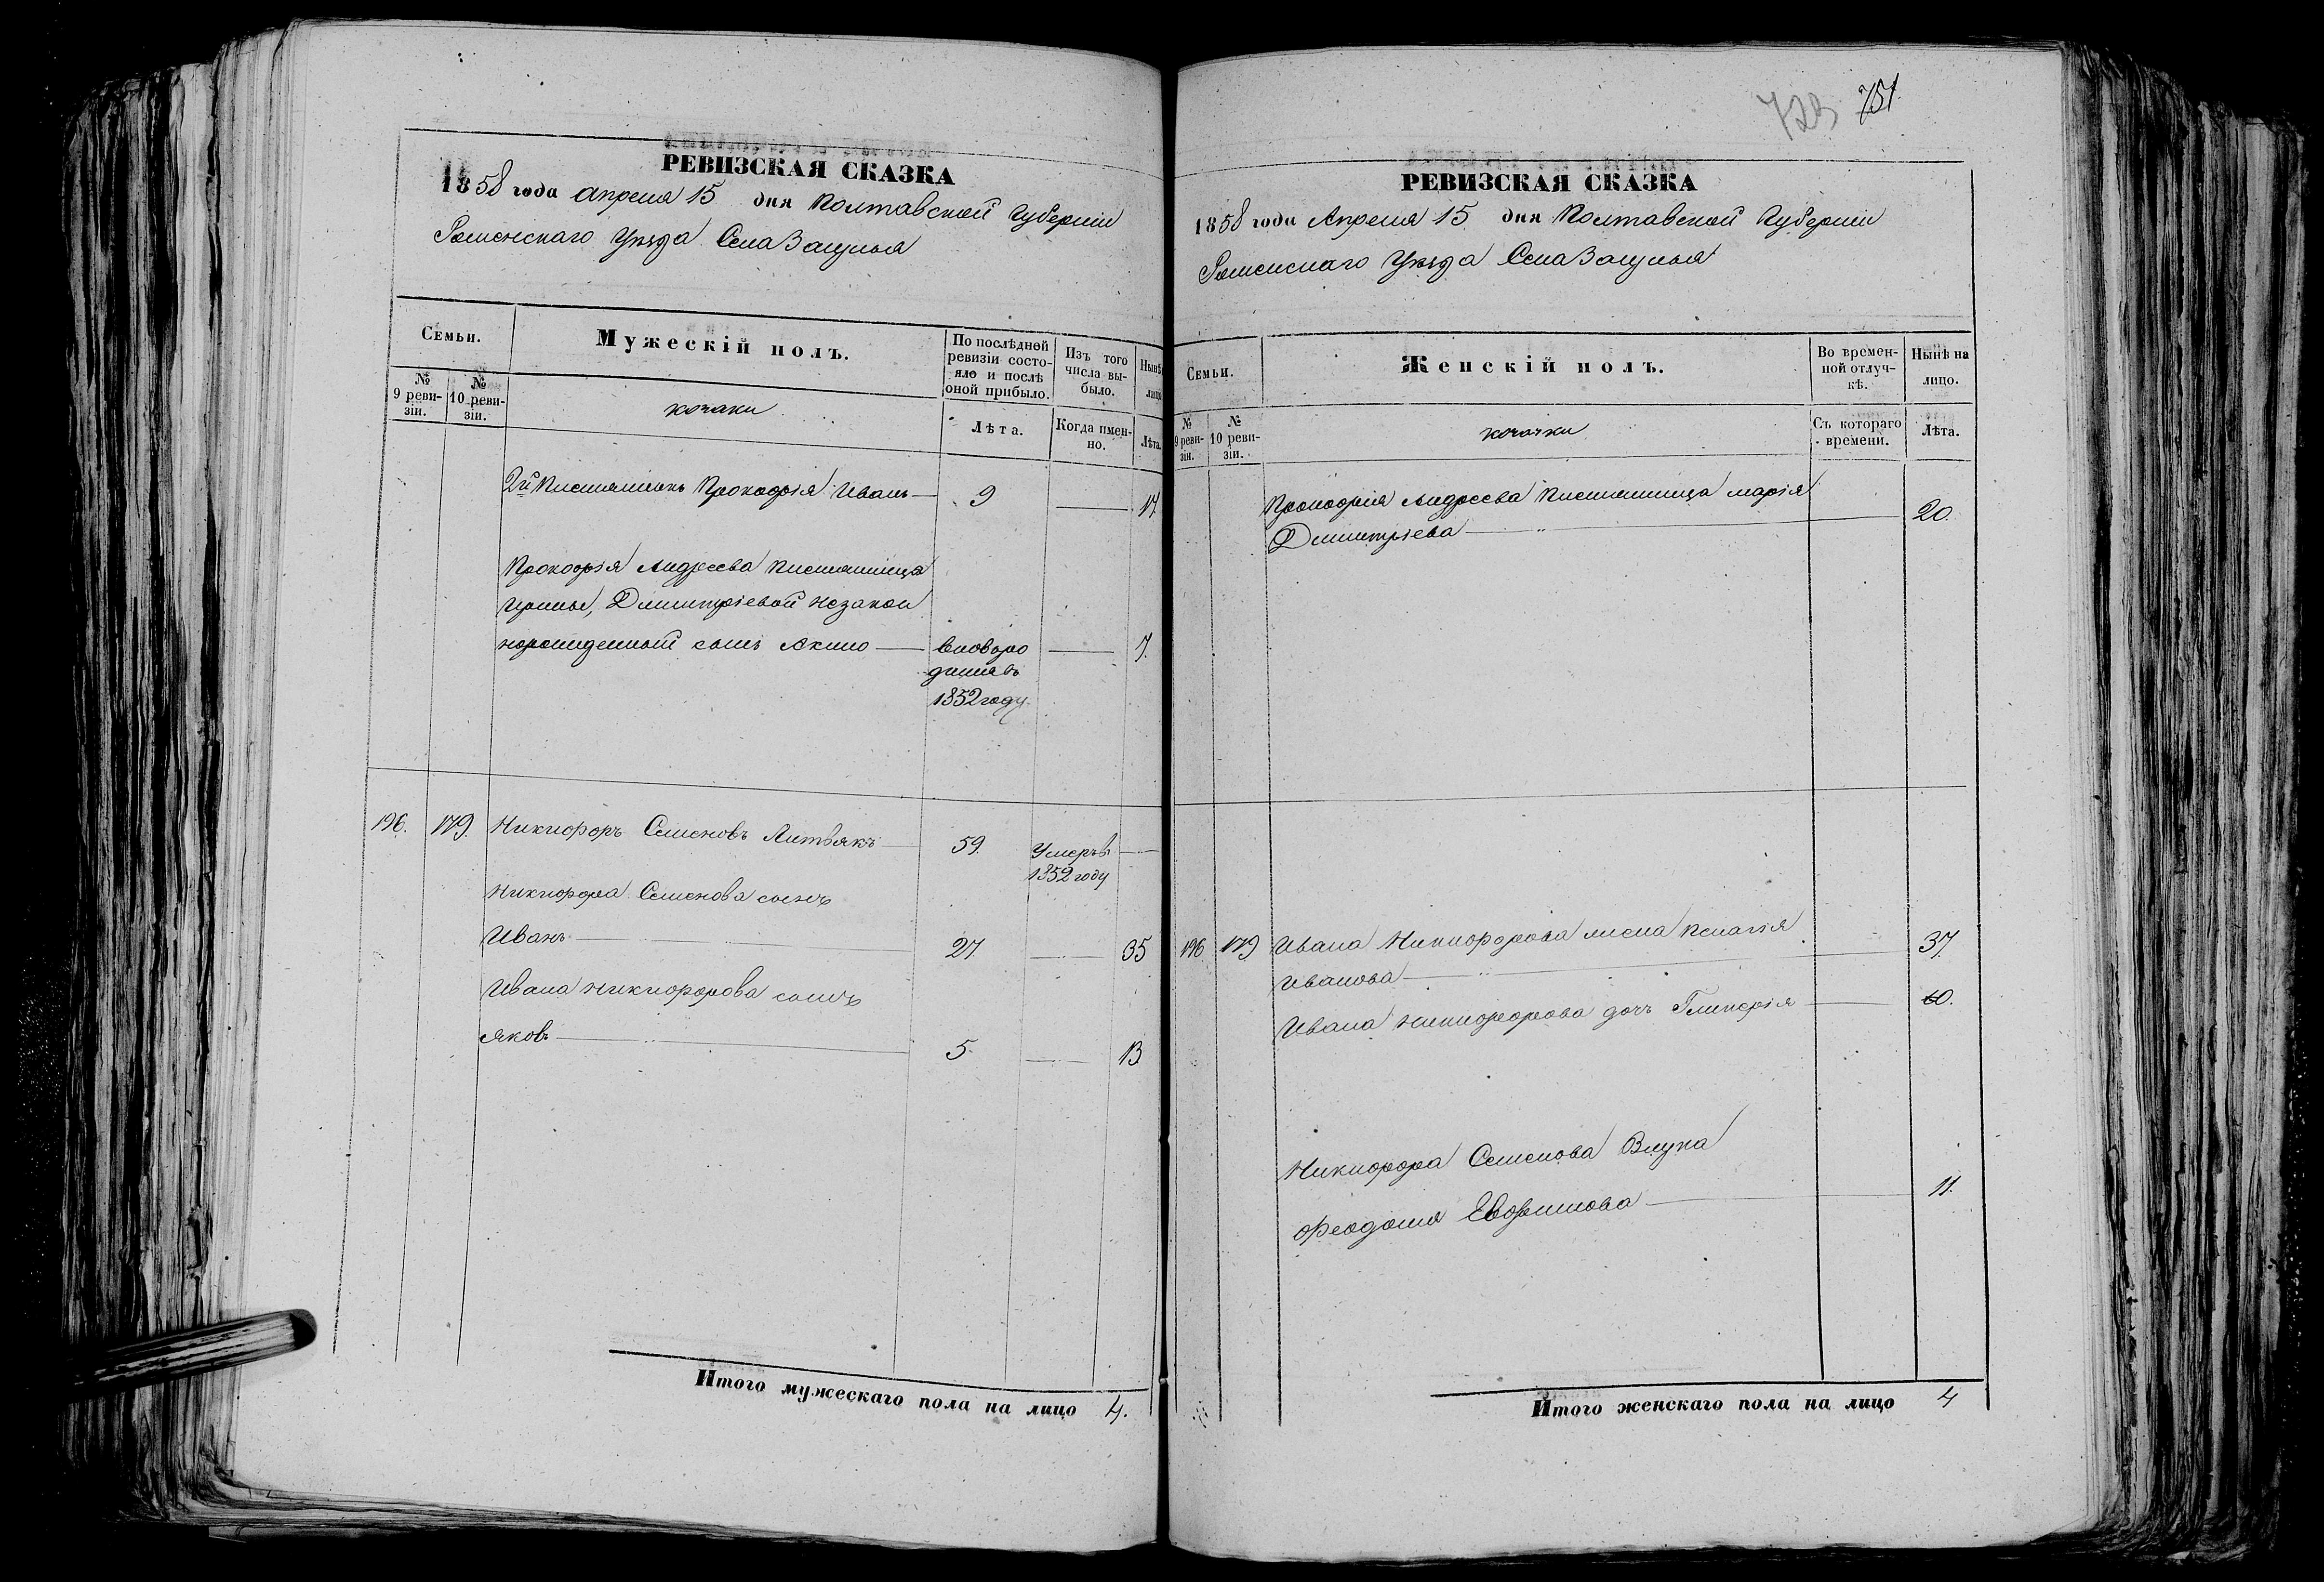 РЕВИЗСКАЯ СКАЗКА
1858 года апреля 15 дня Полтавской Губерніи
Роменскаго Уѣзда Села Загунья
Семьи.
Мужескій полъ.
По послѣдней ревизіи состояло и послѣ оной прибыло.
Изъ того числа выбыло.
Нынѣ
лицо
№ 9 ревизіи.
№ 10 ревизіи.
козаки
Лѣта.
Когда именно.
Лѣта.
2й Племянникъ Прокофія Иванъ 9 17
Прокофія Андреева племянницы
Ирины, Дмитріевой незакон
норожденный сынъ Акимъ вновьро 7.
дился въ
1852 году
196. 179. Никифоръ Семеновъ Литвякъ 59. Умеръ в
1852 году
Никифора Семенова сынъ
Иванъ 27. 35
Ивана Никифорова сынъ
Яковъ 5. 13
Итого мужескаго пола на лицо 4.
723 751.
РЕВИЗСКАЯ СКАЗКА
1858 года Апреля 15 дня Полтавской Губерніи
Роменскаго Уѣзда Села Загунья
Семьи.
Женскій полъ.
Во временной отлучкѣ.
Нынѣ на лицо.
№ 9 ревизіи.
№ 10 ревизіи.
козачки
Съ котораго времени.
Лѣта.
Прокофія Андреева племянница Марія
Дмитріева 20.
196 179 Ивана Никифорова жена Пелагія 37.
Иванова
Ивана Никифорова дочь Гликерія 10.
Никифора Семенова Внука
Феодосія Евфимова 11.
Итого женскаго пола на лицо 4